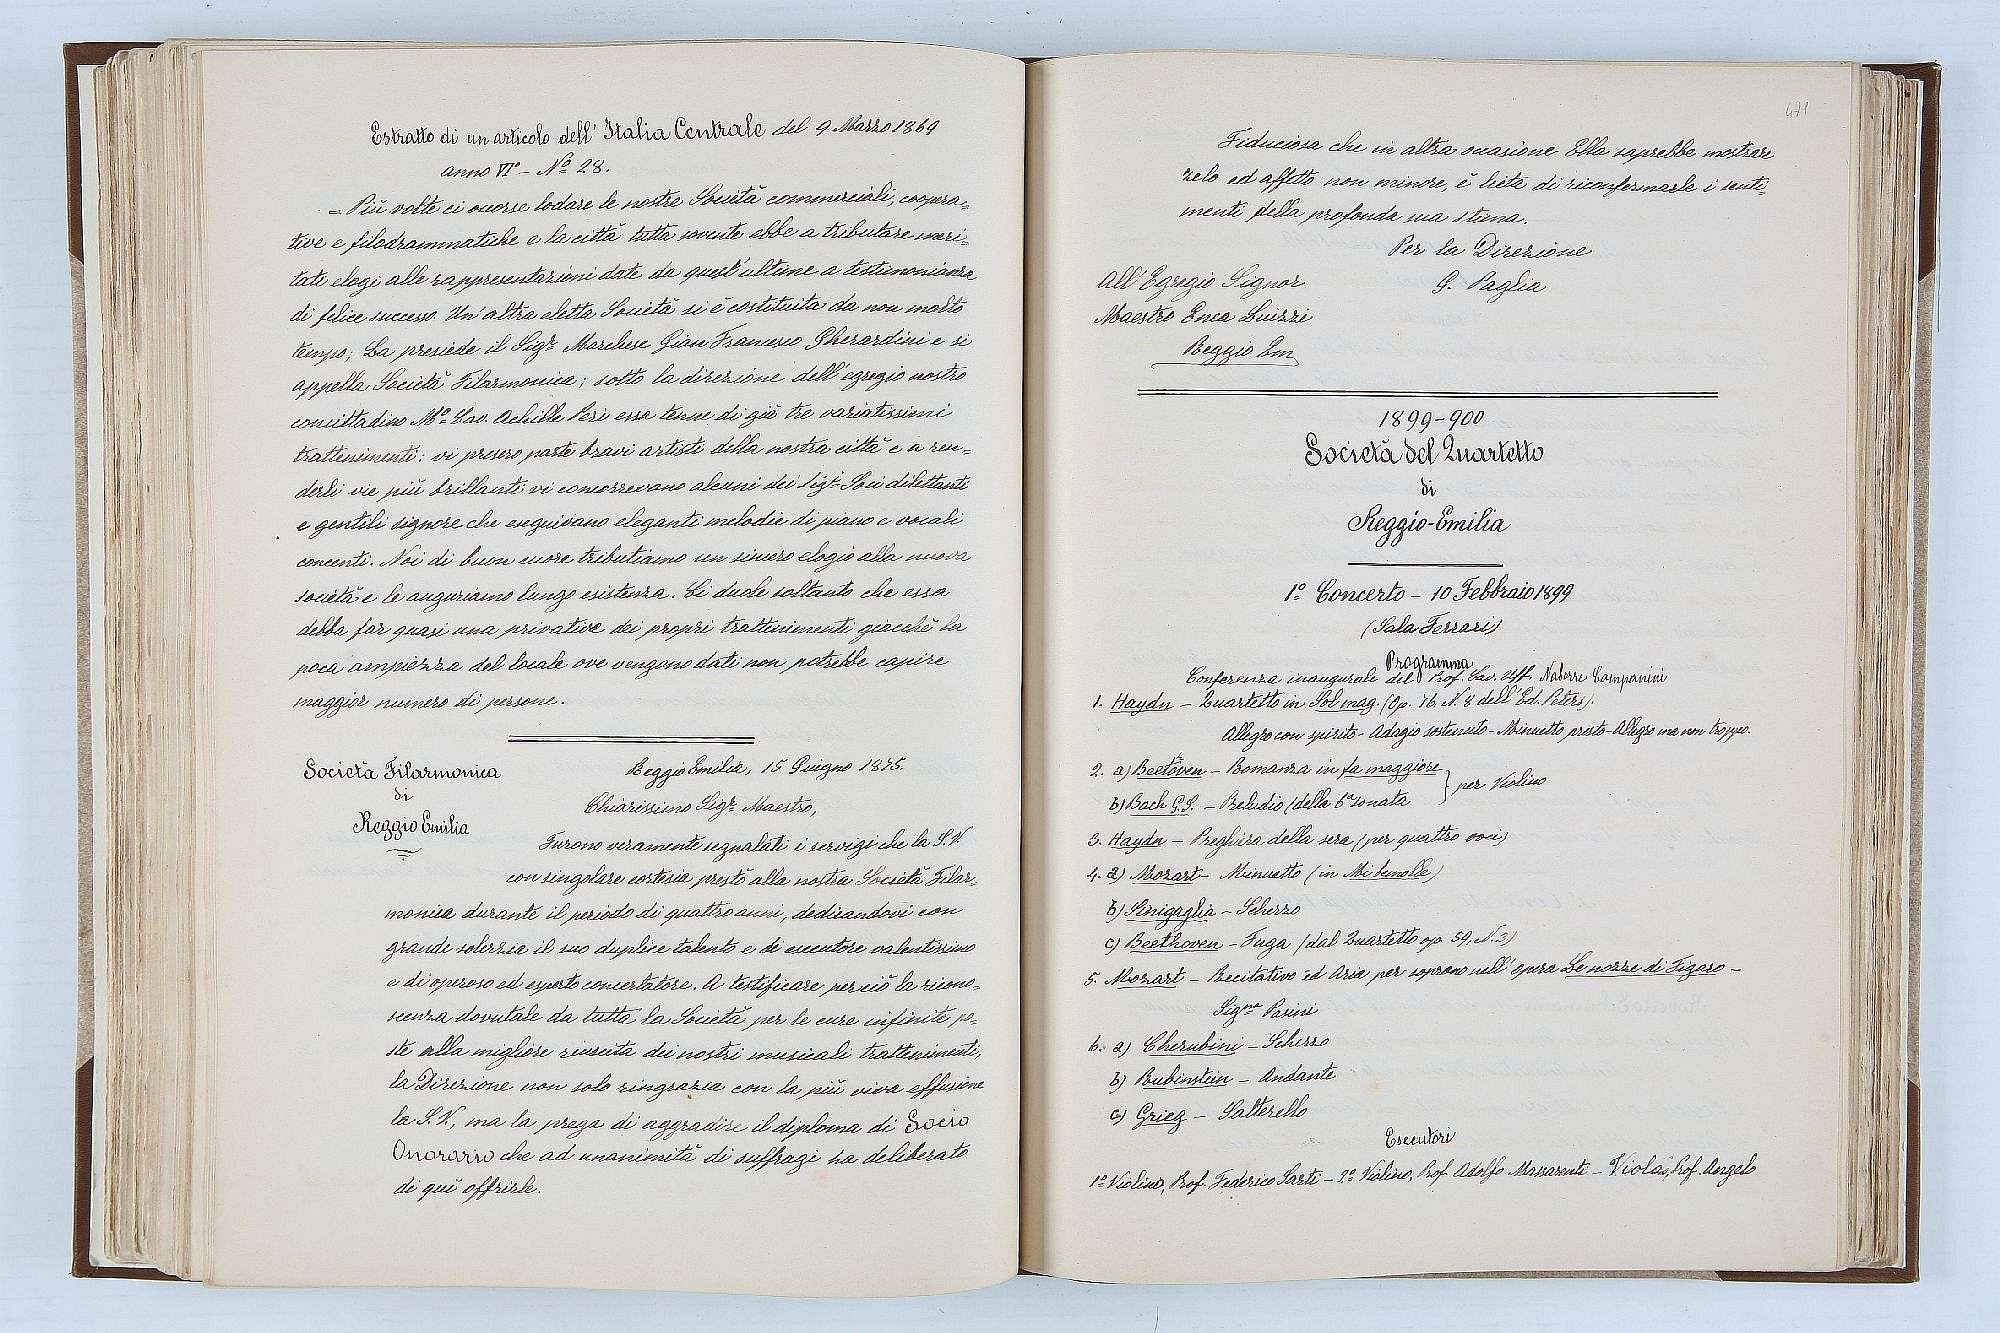 Estratto di un articolo dell'Italia Centrale del 9 Marzo 1869
anno VI° - N° 28.
= Più volte ci occorse lodare le nostre Società commerciali, coopera-
tive e filodrammatiche e la città tutta sovente ebbe a tributare meri-
tati elogi alle rappresentazioni date da quest'ultime a testimonianza
di felice successo. Un'altra eletta Società si è costituita da non molto
tempo; La presiede il Sigr Marchese Gian Francesco Gherardini e si
appella Società Filarmonica; sotto la direzione dell'egregio nostro
concittadino M° Cav. Achille Peri essa tenne di già tre variatissimi
trattenimenti: vi presero parte bravi artisti della nostra città e a ren-
derli vie più brillanti vi concorrevano alcuni dei Sigri Soci dilettanti
e gentili signore che eseguivano eleganti melodie di piano e vocali
concenti. Noi di buon cuore tributiamo un sincero elogio alla nuova
società e le auguriamo lunga esistenza. Ci duole soltanto che essa
debba far quasi una privativa dei propri trattenimenti giacchè la
poca ampiezza del locale ove vengono dati non potrebbe capire
maggior numero di persone.
Società Filarmonica
di
Reggio Emilia
Reggio Emilia, 15 Giugno 1875.
Chiarissimo Sigr Maestro,
Furono veramente segnalati i servigi che la S.V.
con singolare cortesia prestò alla nostra Società Filar-
monica durante il periodo di quattro anni, dedicandovi con
grande solerzia il suo duplice talento e di esecutore valentissimo
e di operoso ed esperto concertatore. A testificare perciò la ricono-
scenza dovutale da tutta la Società per le cure infinite po-
ste alla migliore riuscita dei nostri musicali trattenimenti,
la Direzione non solo ringrazia con la più viva effusione
la S.V., ma la prega di aggradire il diploma di Socio
Onorario che ad unanimità di suffragi ha deliberato
di qui offrirle.
471
Fiduciosa che in altra occasione Ella saprebbe mostrare
zelo ed affetto non minore, è lieta di riconfermarle i senti-
menti della profonda sua stima.
Per la Direzione
All'Egregio Signor G. Paglia
Maestro Enea Luizzi
Reggio Em
1899-900
Società del Quartetto
di
Reggio-Emilia
1° Concerto - 10 Febbraio 1899
(Sala Ferrari)
Programma
Conferenza inaugurale del Prof. Cav. Uff. Naborre Campanini
1. Haydn - Quartetto in Sol mag. (Op. 76 N. 8 dell'Ed. Peters).
Allegro con spirito - Adagio sostenuto - Minuetto presto - Allegro ma non troppo.
2. a) Beetoven - Romanza in fa maggiore
b) Bach G.S. - Preludio (della 6ª sonata
per Violino
3. Haydn - Preghiera della sera (per quattro voci)
4. a) Mozart - Minuetto (in Mi bemolle)
b) Sinigaglia - Scherzo
c) Beethoven - Fuga (dal Quartetto op. 59, N. 3)
5. Mozart - Recitativo ed Aria per soprano nell'opera Le nozze di Figaro -
Signa Pasini
6. a) Cherubini - Scherzo
b) Rubinstein - Andante
c) Grieg - Salterello
Esecutori
1° Violino, Prof. Federico Sarti - 2° Violino, Prof. Adolfo Massarenti - Viola, Prof. Angelo